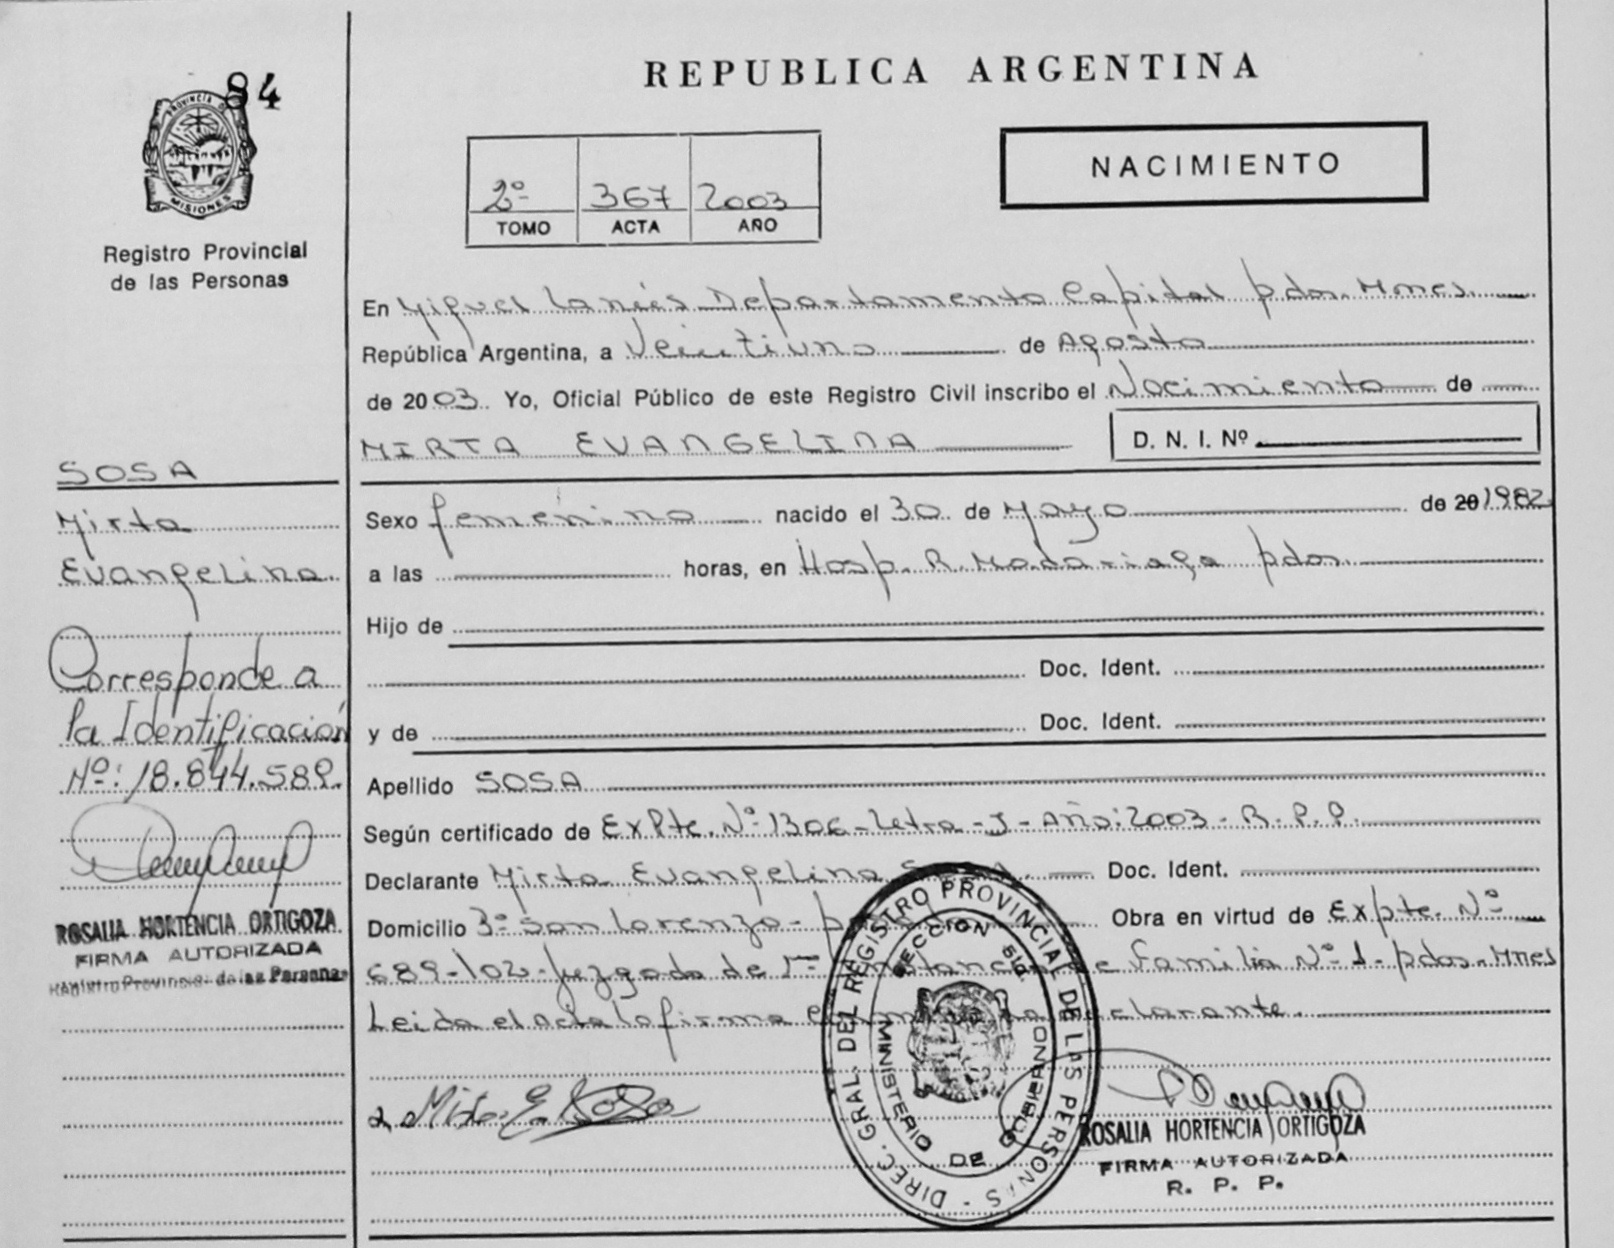 84
PROVINCIA DE
MISIONES
Registro Provincial
de las Personas
SOSA
Mirta
Evangelina.
Corresponde a
la Identificación
Nº: 18.844.589.
ROSALIA HORTENCIA ORTIGOZA
FIRMA AUTORIZADA
Registro Provincial de las Personas
REPUBLICA ARGENTINA
2º 367 2003
TOMO ACTA AÑO
NACIMIENTO
En Miguel Lanús Departamento Capital pdas. Mnes.
República Argentina, a Veintiuno de Agosto
de 2003. Yo, Oficial Público de este Registro Civil inscribo el Nacimiento de
MIRTA EVANGELINA
D. N. I. Nº
Sexo femenino nacido el 30 de Mayo de 20 1982
a las horas, en Hosp. R. Madariaga pdas.
Hijo de
Doc. Ident.
y de Doc. Ident.
Apellido SOSA
Según certificado de Expte. Nº 1306-Letra-J-Año:2003-R.P.P.
Declarante Mirta Evangelina SOSA. Doc. Ident.
Domicilio Sº San Lorenzo- pdas Obra en virtud de Expte. Nº
689-102-Juzgado de 1ra Instancia de Familia Nº 1- pdas-Mnes
Leida el acta la firma la declarante.
Mirta E. Sosa
DIREC. GRAL. DEL REGISTRO PROVINCIAL DE LAS PERSONAS -
MINISTERIO DE GOBIERNO
ROSALIA HORTENCIA ORTIGOZA
FIRMA AUTORIZADA
R. P. P.